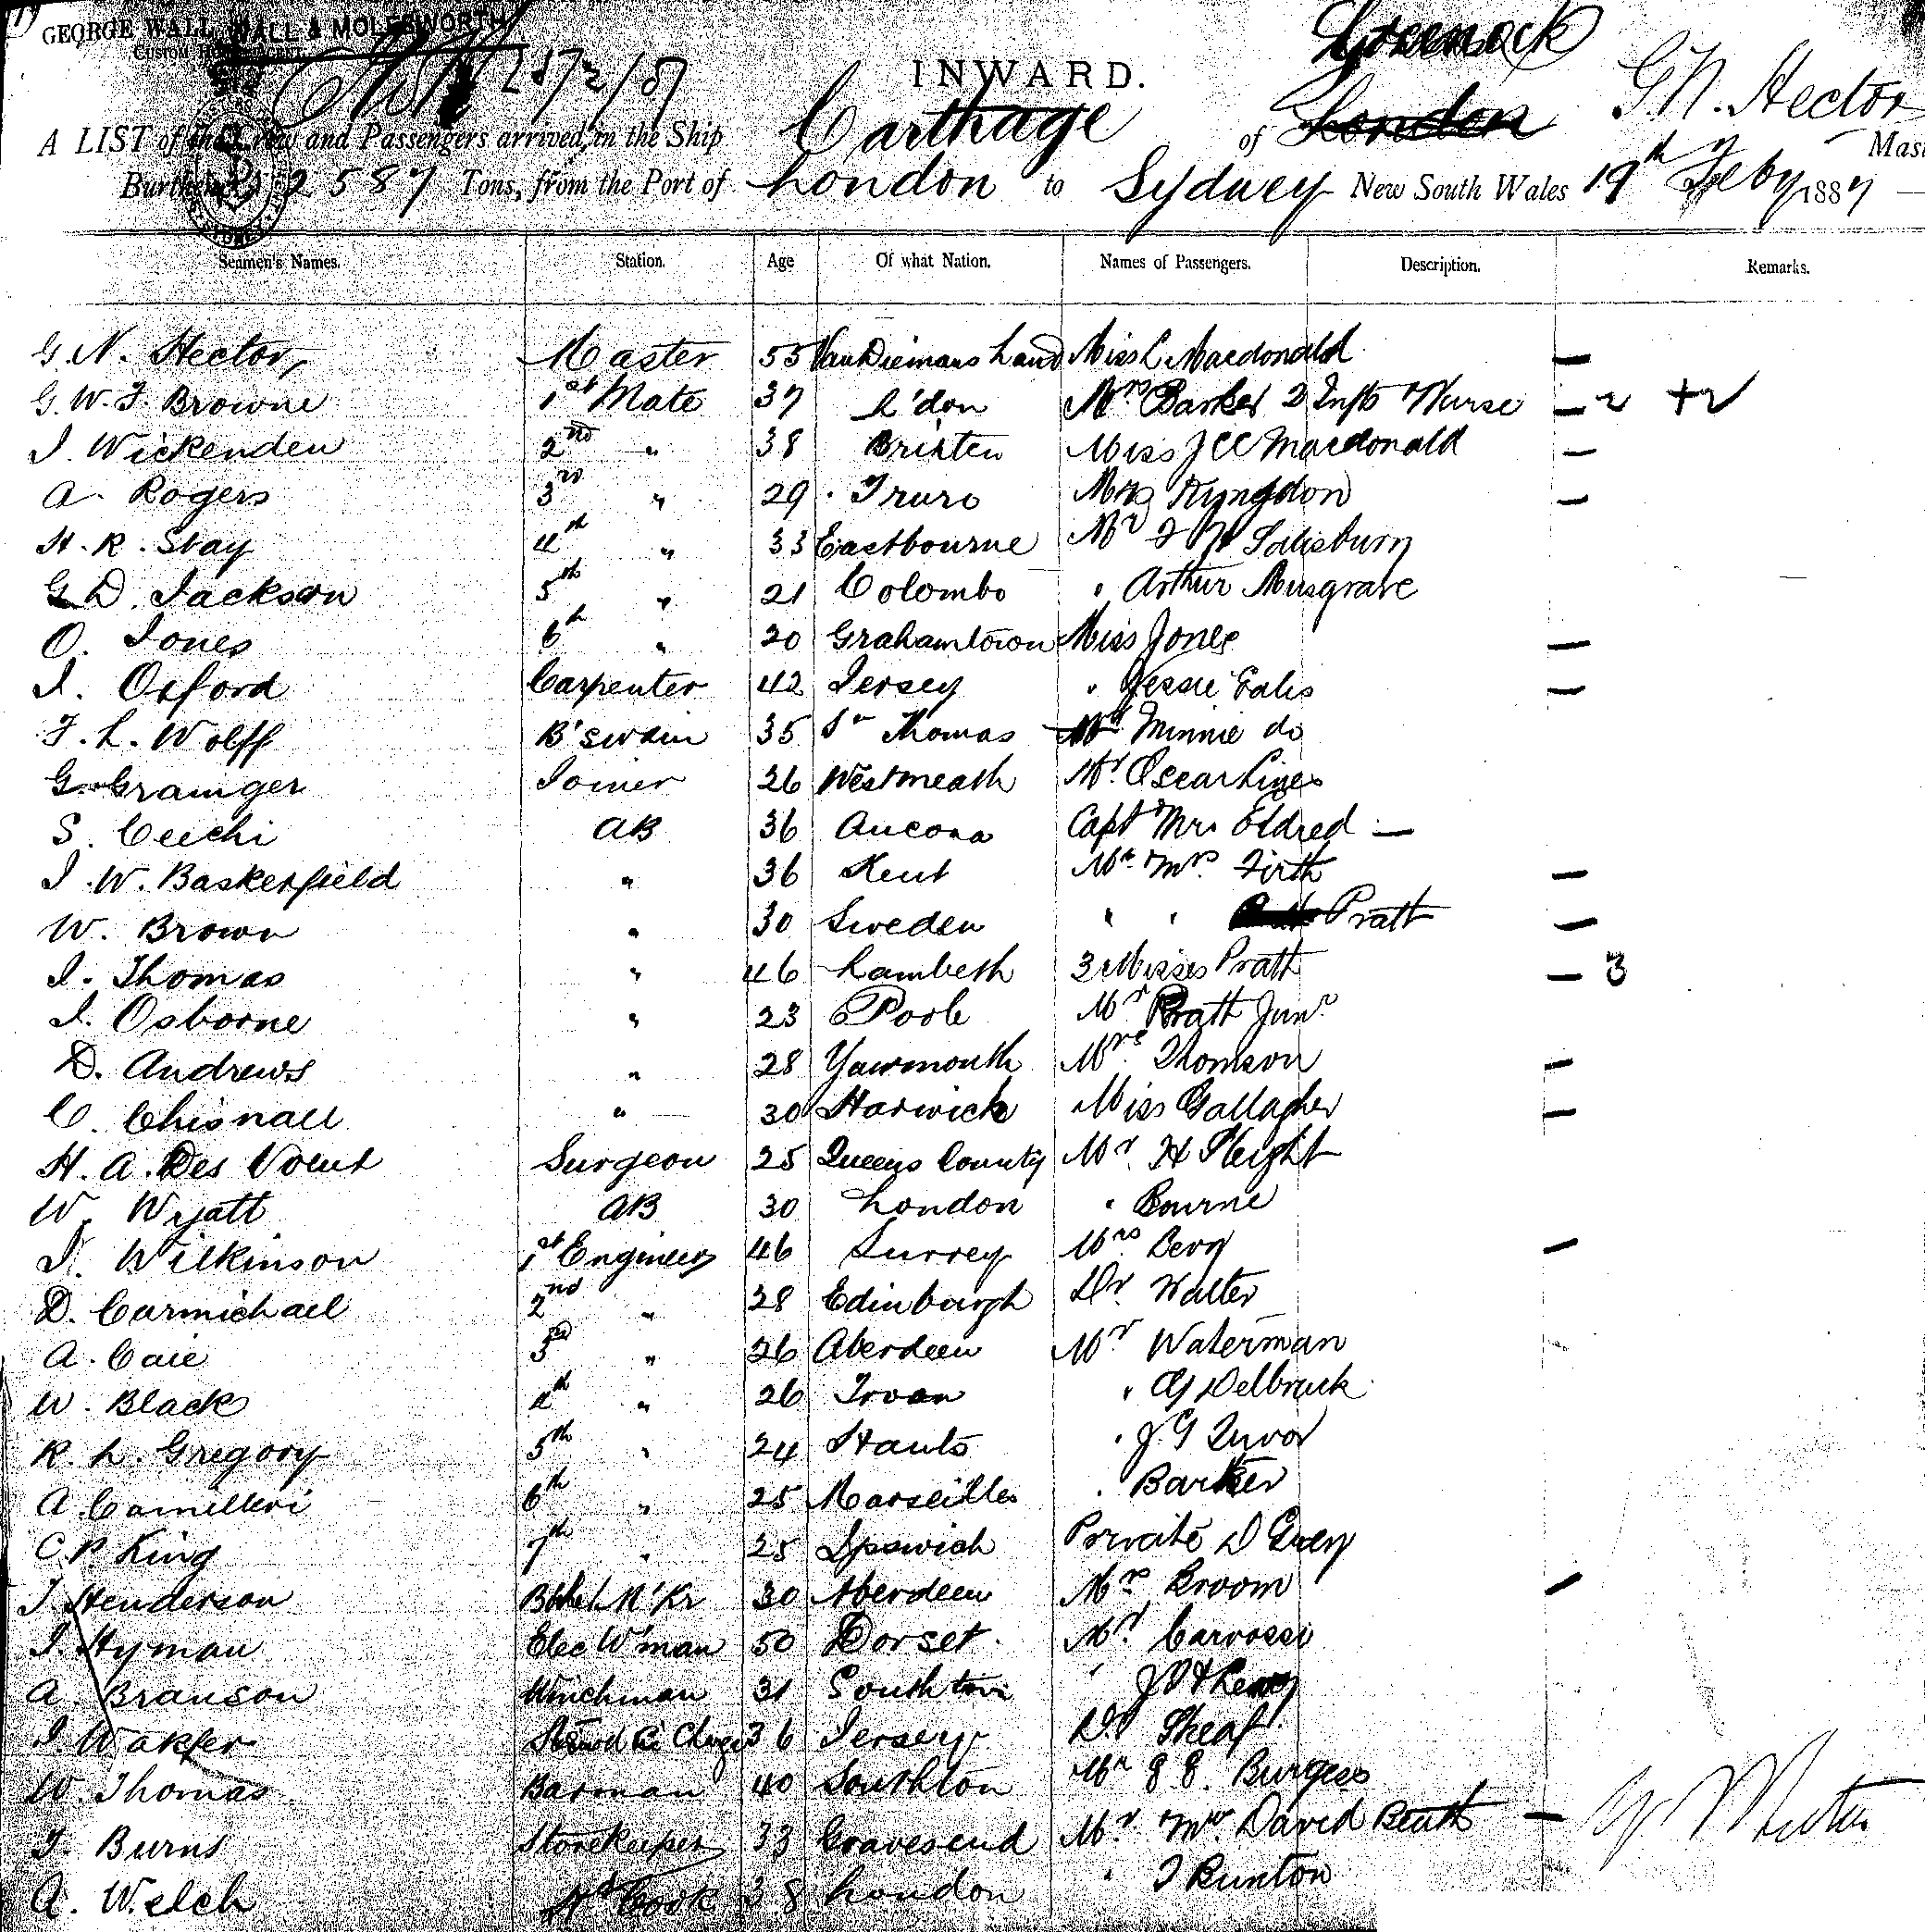 GEORGE WALL WALL & MOLESWORTH
Custom House
INWARD.
Greenock
G.N. Hector
A LIST of the Crew and Passengers arrived in the Ship Carthage of London
Mas
Burthen 2587 Tons, from the Port of London to Sydney New South Wales 19th Feby 1887
Seamen's Names. Station. Age Of what Nation. Names of Passengers. Description. Remarks.
G. N. Hector Master 55 Van Diemans Land Miss L Macdonald
G. W. F. Browne 1st Mate 37 L'don Mrs Barker 2 Infts & Nurse 2 + 2
J. Wickenden 2nd " 38 Brixten Miss J C C Macdonald
A. Rogers 3rd " 29 Truro Mrs Kingdon
H. R. Stay 4th " 33 Eastbourne Mr Salisbury
G D. Jackson 5th " 21 Colombo " Arthur Musgrave
O. Jones 6th " 20 Grahamtown Miss Jones
J. Oxford Carpenter 42 Jersey " Jessie Eales
F. L. Wolff B'swain 35 St Thomas Minnie do
G. Grainger Joiner 26 Westmeath Mr. Oscar Lines
S. Cecchi AB 36 Ancona Capt & Mrs Eldred
J. W. Baskerfield " 36 Kent Mr & Mrs Firth
W. Brown " 30 Sweden " " Pratt
J. Thomas " 46 Lambeth 3 Misses Pratt 3
J. Osborne " 23 Poole Mr Pratt Junr
D. Andrews " 28 Yarmouth Mrs Thomson
C. Chisnall " 30 Harwick Miss Gallagher
H. A. Des Voeux Surgeon 25 Queens County Mr. H Sleight
W. Wyatt AB 30 London " Bourne
J. Wilkinson 1st Engineer 46 Surrey Mrs Berry
D. Carmichael 2nd " 28 Edinburgh Dr. Walter
A. Caie 3rd " 26 Aberdeen Mr Waterman
W. Black 4th " 26 Irvan " Delbruck
R. L. Gregory 5th " 24 Hants " J. G
A. Camilleri 6th " 25 Marseilles " Barker
C. P. King 7th " 25 Ipswich Private D Grey
J. Henderson 30 Aberdeen Mrs Broom
J. Hyman Elec W'man 50 Dorset Mr. Carvosso
A. Branson Winchman 31 Southton
J. Wakfer 36 Jersey Dr Sheaf
W. Thomas Barman 40 Southton Mr Burgess
J. Burns Storekeeper 33 Gravesend Mr & Mrs David
A. Welch Cook 38 London " J Runton